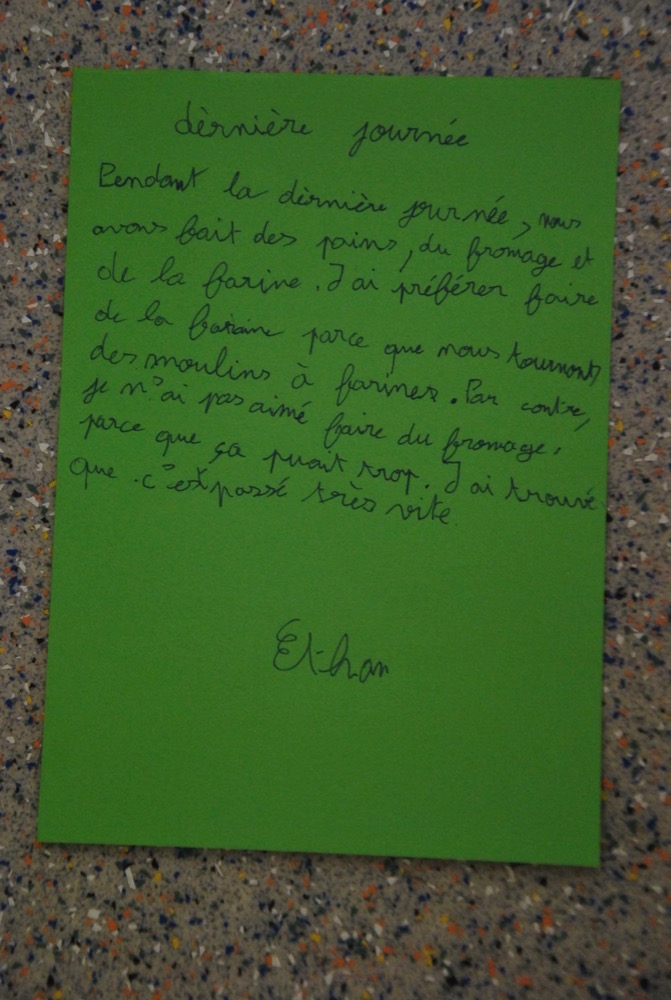 dèrnière journée
Pendant la dèrnière journée, nous
avons fait des pains, du fromage et
de la farine. J'ai préférer faire
de la farine parce que nous tournons
des moulins à farines. Par contre,
je n'ai pas aimé faire du fromage,
parce que ça puait trop. J'ai trouvé
que c'est passé très vite
Ethan